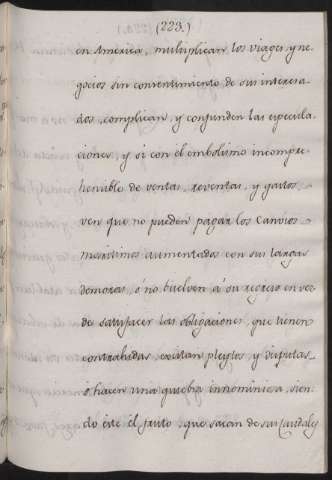 (223.)
en America, multiplican los viages y ne-
gocios sin consentimiento de sus interesa-
dos, complican, y confunden las especula-
ciones, y si con el embolismo incompre-
hensible de ventas, reventas, y gastos,
ven que no pueden pagar los Canvios
maritimos aumentados con sus largas
demoras, ó no buelven á su regreso en vez
de satisfacer las obligaciones, que tienen
contrahidas, excitan pleytos, y disputas
ó hacen una quiebra innominiosa, sien-
do este el fruto, que sacan de sus Caudales